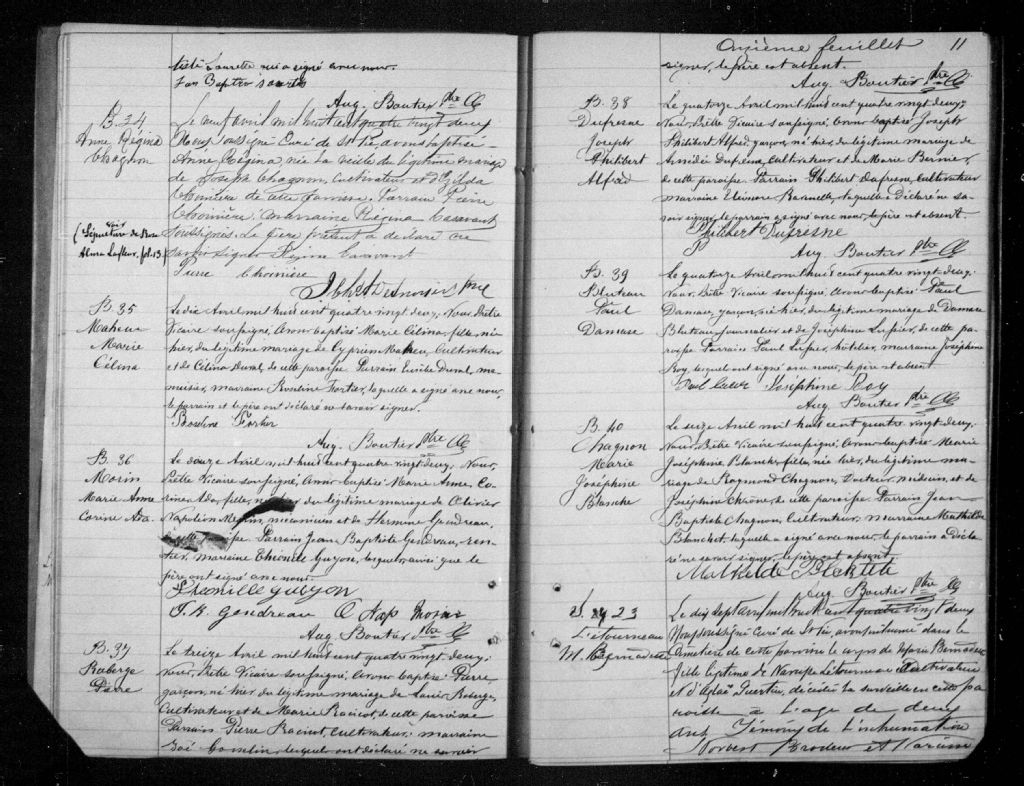 tiste Laurette qui a signé avec nous.
Jean Baptiste Laurette
Aug. Boutier Ptre
B. 34
Anne Régina
Chagnon
Le neuf avril mil huit cent quatre vingt deux
Nous soussigné Curé de St Pie, avons baptisé
Anne Régina née la veille du légitime mariage
de Joseph Chagnon, cultivateur et d'Ezilda
Chonière de cette paroisse. Parrain Pierre
Chonière, marraine Régina Casavant
soussignés. Le père présent a déclaré ne
savoir signer Régina Casavant
Pierre Chonière
Desnoyers Ptre
(Voir Sépulture de Rose
Alma Lafleur, fol. 13)
B. 35
Maheu
Marie
Célina
Le dix Avril mil huit cent quatre vingt deux, Nous, Prêtre
Vicaire soussigné, avons baptisé Marie Célina, fille, née
hier, du légitime mariage de Cyprien Maheu, Cultivateur
et de Célina Duval, de cette paroisse Parrain Eusèbe Duval, me-
nuisier, marraine Roseline Fortier, laquelle a signé avec nous,
le parrain et le père ont déclaré ne savoir signer.
Roseline Fortier
Aug. Boutier Ptre
B. 36
Morin
Marie Anne
Corine Ada.
Le douze Avril mil huit cent quatre vingt deux, Nous,
Prêtre Vicaire soussigné, avons baptisé Marie Anne, Co-
rine, Ada, fille, née hier du légitime mariage de Olivier
Napoléon Morin, mécanicien et de Hermine Gendreau,
de cette paroisse. Parrain Jean Baptiste Gendreau, ren-
tier, marraine Théonille Guyon, lesquels aussi que le
père ont signé avec nous.
Théonille Guyon
J. B. Gendreau O Nap Morin
Aug. Boutier Ptre
B. 37
Roberge
Pierre
Le treize Avril mil huit cent quatre vingt deux;
Nous, Prêtre Vicaire soussigné, avons baptisé Pierre
garçon, né hier du légitime mariage de Louis Roberge,
Cultivateur et de Marie Racicot, de cette paroisse
Parrain Pierre Racicot, Cultivateur; marraine
Zoé Gosselin, lesquels ont déclaré ne savoir
Onzième feuillet 11
signer, le père est absent.
Aug. Boutier Ptre
B. 38
Dufresne
Joseph
Philibert
Alfred
Le quatorze Avril mil huit cent quatre vingt deux,
Nous, Prêtre Vicaire soussigné, avons baptisé Joseph
Philibert Alfred, garçon, né hier, du légitime mariage de
Amédée Dufresne, Cultivateur et de Marie Bernier,
de cette paroisse. Parrain Philibert Dufresne, Cultivateur
marraine Eléonore, laquelle a déclaré ne sa-
voir signer, le parrain a signé avec nous, le père est absent.
Philibert Dufresne
Aug. Boutier Ptre
B. 39
Bluteau
Paul
Damase
Le quatorze Avril mil huit cent quatre vingt deux,
Nous, Prêtre Vicaire soussigné, avons baptisé Paul
Damase, garçon, né hier, du légitime mariage de Damase
Bluteau, Journalier et de Joséphine Lussier, de cette pa-
roisse Parrain Paul Lussier, hôtelier, marraine Joséphine
Roy, lesquels ont signé avec nous, le père est absent
Paul Lussier Joséphine Roy
Aug. Boutier Ptre
B. 40
Chagnon
Marie
Joséphine
Blanche
Le seize Avril mil huit cent quatre vingt deux,
Nous, Prêtre Vicaire soussigné, avons baptisé Marie
Joséphine Blanche, fille, née hier, du légitime ma-
riage de Raymond Chagnon, Docteur médecin, et de
Joséphine de cette paroisse. Parrain Jean-
Baptiste Chagnon, Cultivateur, marraine Mathilde
Blanchet, laquelle a signé avec nous, le parrain a décla-
ré ne savoir signer, le père est absent.
Mathilde
Aug. Boutier Ptre
S. 23
Létourneau
M. Bernadette
Le dix sept avril mil huit cent quatre vingt deux
Nous soussigné curé de St Pie avons inhumé dans le
Cimetière de cette paroisse le corps de Marie Bernadette
fille légitime de Narcisse Létourneau cultivateur
et d'Aglaé Guertin, décédée la surveille en cette pa
roisse à l'âge de deux
ans Témoins de l'inhumation
Norbert Brodeur et